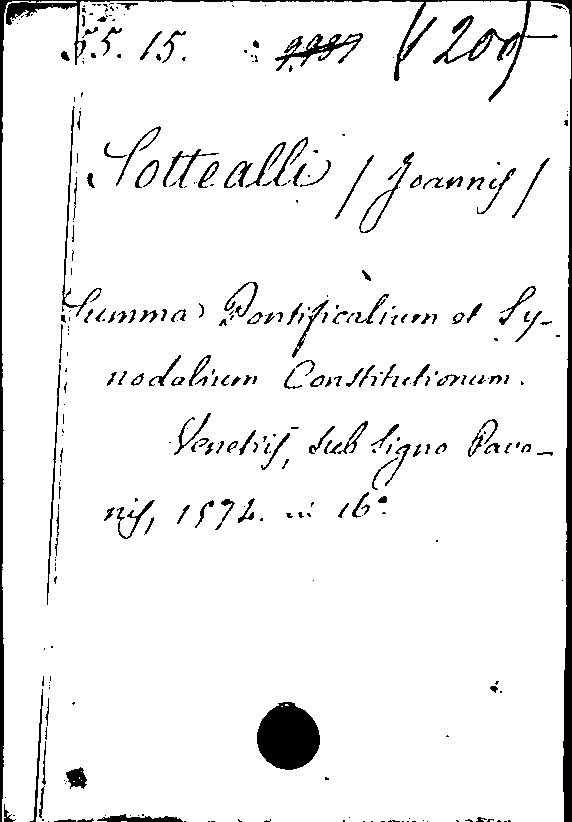 55. 15. (1200)
Sottealli / Joannis /
Summa Pontificalium et Sy-
nodalium Constitutionum.
Venetiis, sub signo Pavo-
nis, 1572. in 16°